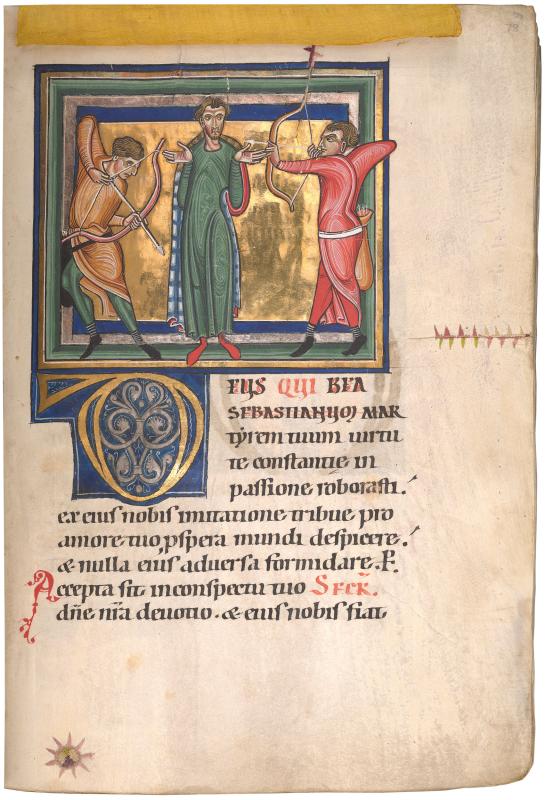 78
DEUS QUI BEA
SEBASTIANUM MAR
tyrem tuum uirtu
te constantie in
passione roborasti.
ex eius nobis imitatione tribue pro
amore tuo pspera mundi despicere.
& nulla eius aduersa formidare. P.
Accepta sit inconspectu tuo SECR.
dñe nra deuotio. & eius nobis fiat